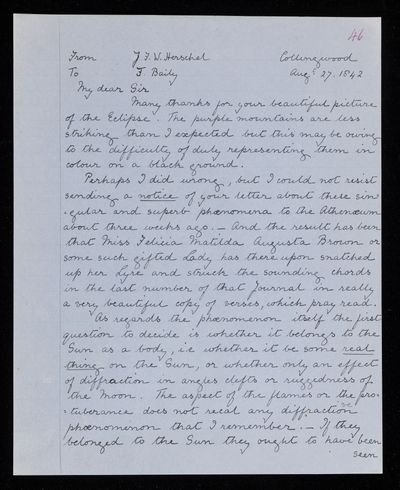 46
From J F. W. Herschel Collingwood
To F. Baily Augt 27. 1842
My dear Sir
Many thanks for your beautiful picture
of the Eclipse. The purple mountains are less
striking than I expected but this may be owing
to the difficulty of duly representing them in
colour on a black ground.
Perhaps I did wrong, but I could not resist
sending a notice of your letter about these sin
-gular and superb phœnomena to the Athenœum
about three weeks ago. — And the result has been
that Miss Felicia Matilda Augusta Brown or
some such gifted Lady has there upon snatched
up her Lyre and struck the sounding chords
in the last number of that Journal in really
a very beautiful copy of verses, which pray read.
As regards the phœnomenon itself the first
question to decide is whether it belongs to the
Sun as a body, i.e whether it be some real
thing on the Sun, or whether only an effect
of diffraction in angles clefts or ruggedness of
the Moon. The aspect of the flames or the pro-
-tuberance does not recal any diffraction
phœnomenon that I remember. — If they
belonged to the Sun they ought to have been
seen